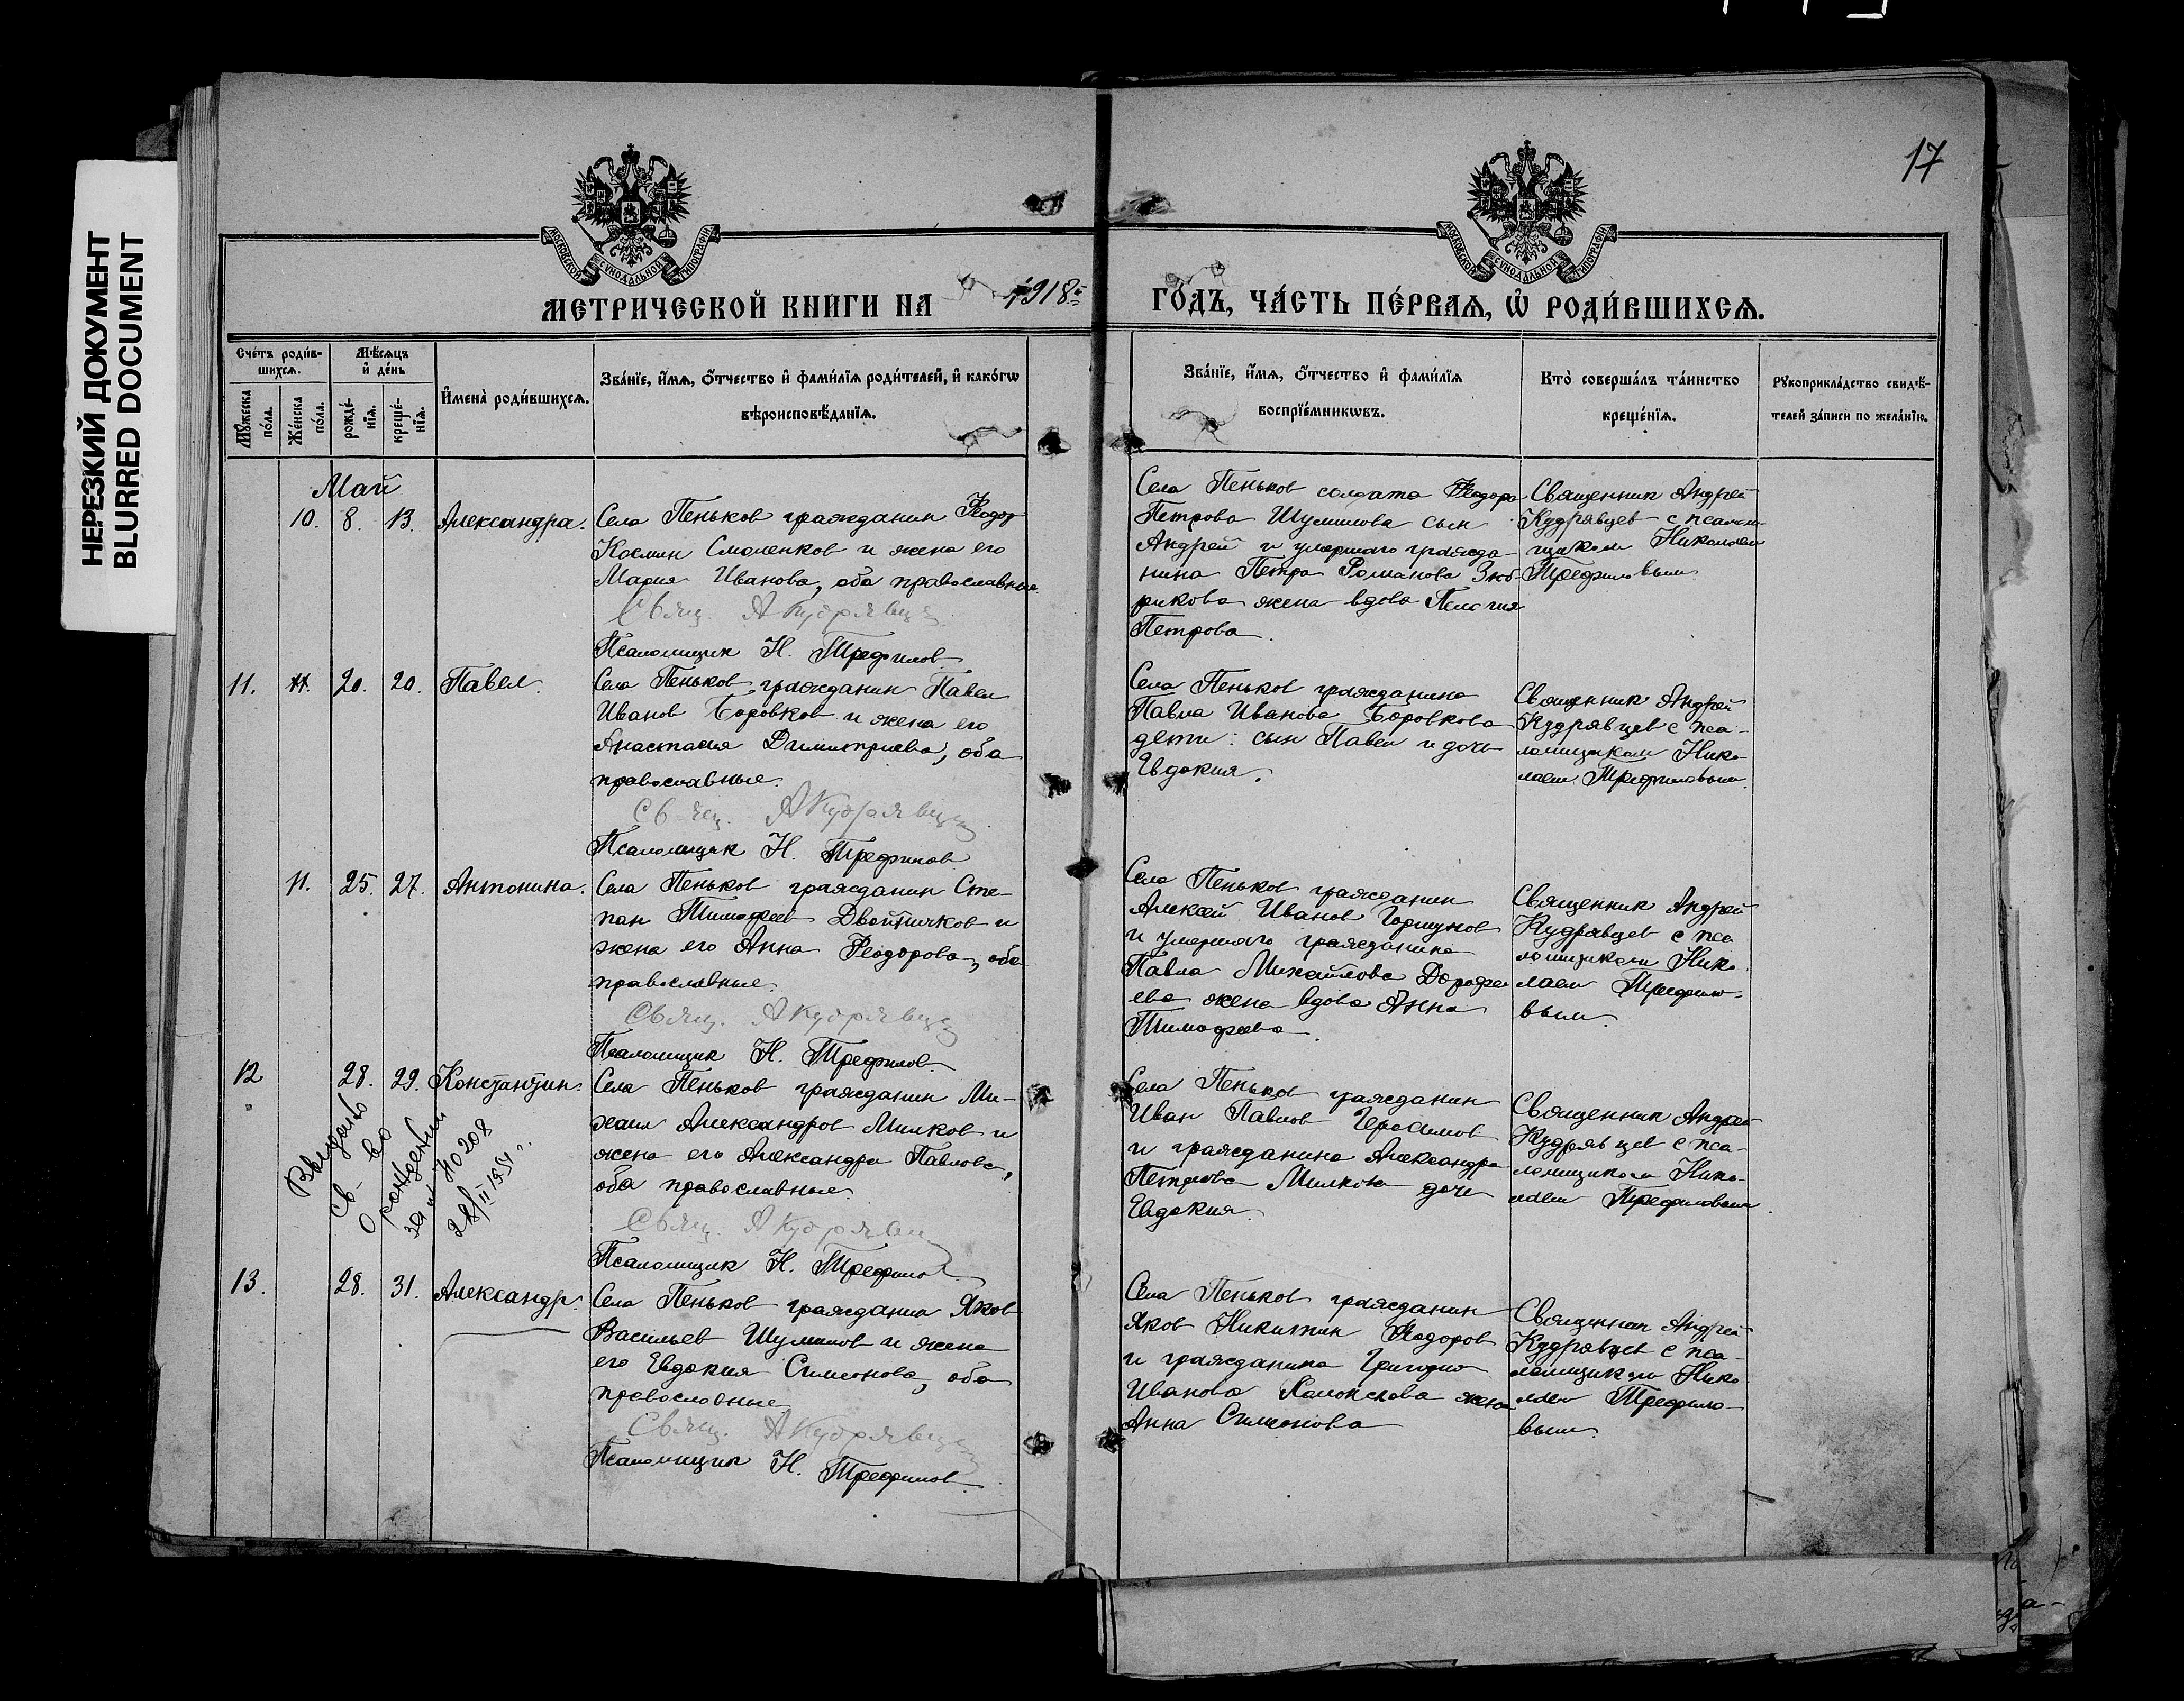 НЕРЕЗКИЙ ДОКУМЕНТ
BLURRED DOCUMENT
17
МОСКОВСКОЙ СѴНОДАЛЬНОЙ ТИПОГРАФІИ
МОСКОВСКОЙ СѴНОДАЛЬНОЙ ТИПОГРАФІИ
МЕТРИЧЕСКОЙ КНИГИ НА 1918 ГО́ДЪ, ЧА́СТЬ ПЕ́РВАѦ, Ѡ҆ РОДИ́ВШИХСѦ.
Сче́тъ роди́в-
шихсѧ.
Мꙋ́жеска
по́ла.
Же́нска
по́ла.
Мѣ́сѧцъ
и҆ де́нь
рожде́-
нїѧ.
креще́-
нїѧ.
И҆мена̀ роди́вшихсѧ.
Зва́нїе, и҆́мѧ, ѻ҆́тчество и҆ фами́лїѧ роди́телей, и҆ како́гѡ
вѣроисповѣ́данїѧ.
Зва́нїе, и҆́мѧ, ѻ҆́тчество и҆ фами́лїѧ
воспрїе́мникѡвъ.
Кто̀ соверша́лъ та́инство
креще́нїѧ.
Рꙋкоприкла́дство свидѣ́-
телей за́писи по жела́нїю.
Май
10. 8. 13. Александра.
Села Пеньков гражданин Феодор
Космин Смоленков и жена его
Мария Иванова, оба православные
Свящ. А Кудрявцев
Псаломщик Н. Трефилов
Села Пеньков солдата Феодора
Петрова Шумилова сын
Андрей и умершаго гражда-
нина Петра Романова Зюб-
рикова жена вдова Пелагия
Петрова.
Священник Андрей
Кудрявцев с псалом-
щиком Николаем
Трефиловым
11. 11. 20. 20. Павел.
Села Пеньков гражданин Павел
Иванов Боровков и жена его
Анастасия Димитриева, оба
православные.
Свящ. А Кудрявцев
Псаломщик Н. Трефилов
Села Пеньков гражданина
Павла Иванова Боровкова
дети: сын Павел и дочь
Евдокия.
Священник Андрей
Кудрявцев с пса-
ломщиком Нико-
лаем Трефиловым.
11. 25. 27. Антонина.
Села Пеньков гражданин Сте-
пан Тимофеев Двойничков и
жена его Анна Феодорова, оба
православные.
Свящ. А Кудрявцев
Псаломщик Н. Трефилов.
Села Пеньков гражданин
Алексей Иванов Горшунов
и умершаго гражданина
Павла Михайлова Дорофе
ева жена вдова Анна
Тимофеева.
Священник Андрей
Кудрявцев с пса
ломщиком Нико
лаем Трефило-
вым.
12 28. 29. Константин.
Выдано
св-во
о рождении
за № 40208
28/II 1951 г.
Села Пеньков гражданин Ми-
хаил Александров Милков и
жена его Александра Павлова,
оба православные
Свящ. А Кудрявцев
Псаломщик Н. Трефилов
Села Пеньков гражданин
Иван Павлов Герасимов
и гражданина Александра
Петрова Милкова дочь
Евдокия.
Священник Андрей
Кудрявцев с пса-
ломщиком Нико-
лаем Трефиловым.
13. 28. 31. Александр.
Села Пеньков гражданин Яков
Васильев Шумилов и жена
его Евдокия Симеонова, оба
православные
Свящ. А Кудрявцев
Псаломщик Н. Трефилов.
Села Пеньков гражданин
Яков Никитин Феодоров
и гражданина Григория
Иванова жена
Анна Симеонова
Священник Андрей
Кудрявцев с пса-
ломщиком Нико
лаем Трефило-
вым.